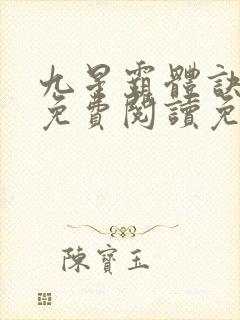 九星霸體訣
免費閱讀免
陳寶玉